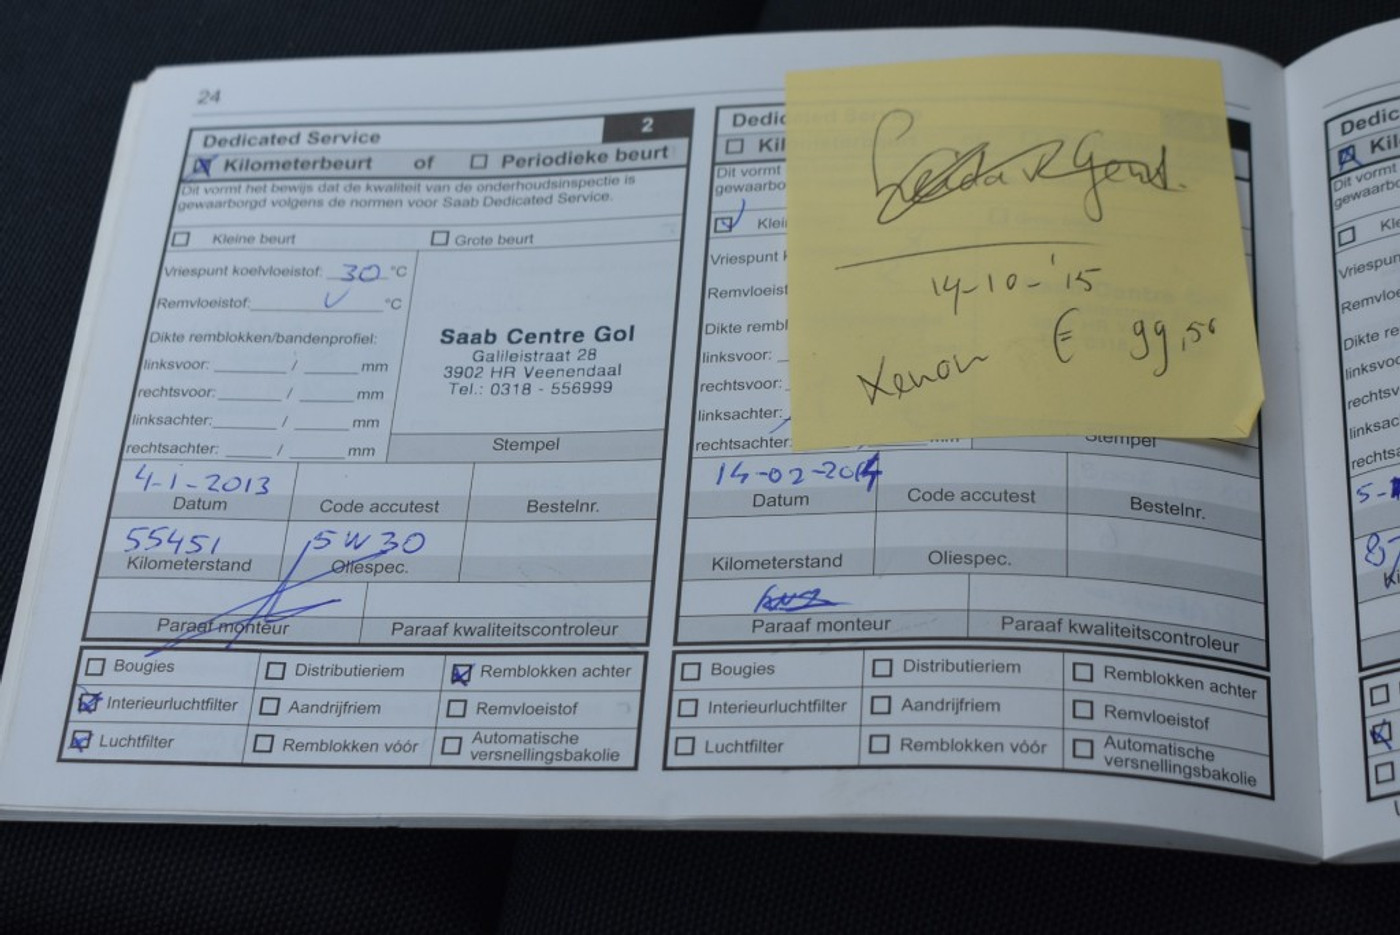 24
Dedicated Service 2
Kilometerbeurt of Periodieke beurt
Dit vormt het bewijs dat de kwaliteit van de onderhoudsinspectie is
gewaarborgd volgens de normen voor Saab Dedicated Service.
Kleine beurt Grote beurt
Vriespunt koelvloeistof: 30 °C
Remvloeistof: °C
Dikte remblokken/bandenprofiel:
linksvoor: / mm
rechtsvoor: / mm
linksachter: / mm
rechtsachter: / mm
Saab Centre Gol
Galileistraat 28
3902 HR Veenendaal
Tel.: 0318 - 556999
Stempel
4-1-2013
Datum Code accutest Bestelnr.
55451 5W30
Kilometerstand Oliespec.
Paraaf monteur Paraaf kwaliteitscontroleur
Bougies Distributieriem Remblokken achter
Interieurluchtfilter Aandrijfriem Remvloeistof
Luchtfilter Remblokken vóór Automatische
versnellingsbakolie
Dedic
Kil
Dit vormt
gewaarbo
Klei
Vriespunt k
Remvloeist
Dikte rembl
linksvoor:
rechtsvoor:
linksachter:
rechtsachter: mm
Stempel
14-10-'15
Xenon € 99,50
14-02-2014
Datum Code accutest Bestelnr.
Kilometerstand Oliespec.
Paraaf monteur Paraaf kwaliteitscontroleur
Bougies Distributieriem Remblokken achter
Interieurluchtfilter Aandrijfriem Remvloeistof
Luchtfilter Remblokken vóór Automatische
versnellingsbakolie
Dedic
Kil
Dit vormt
gewaarbo
Kle
Vriespun
Remvloe
Dikte re
linksvo
rechtsv
linksac
rechts